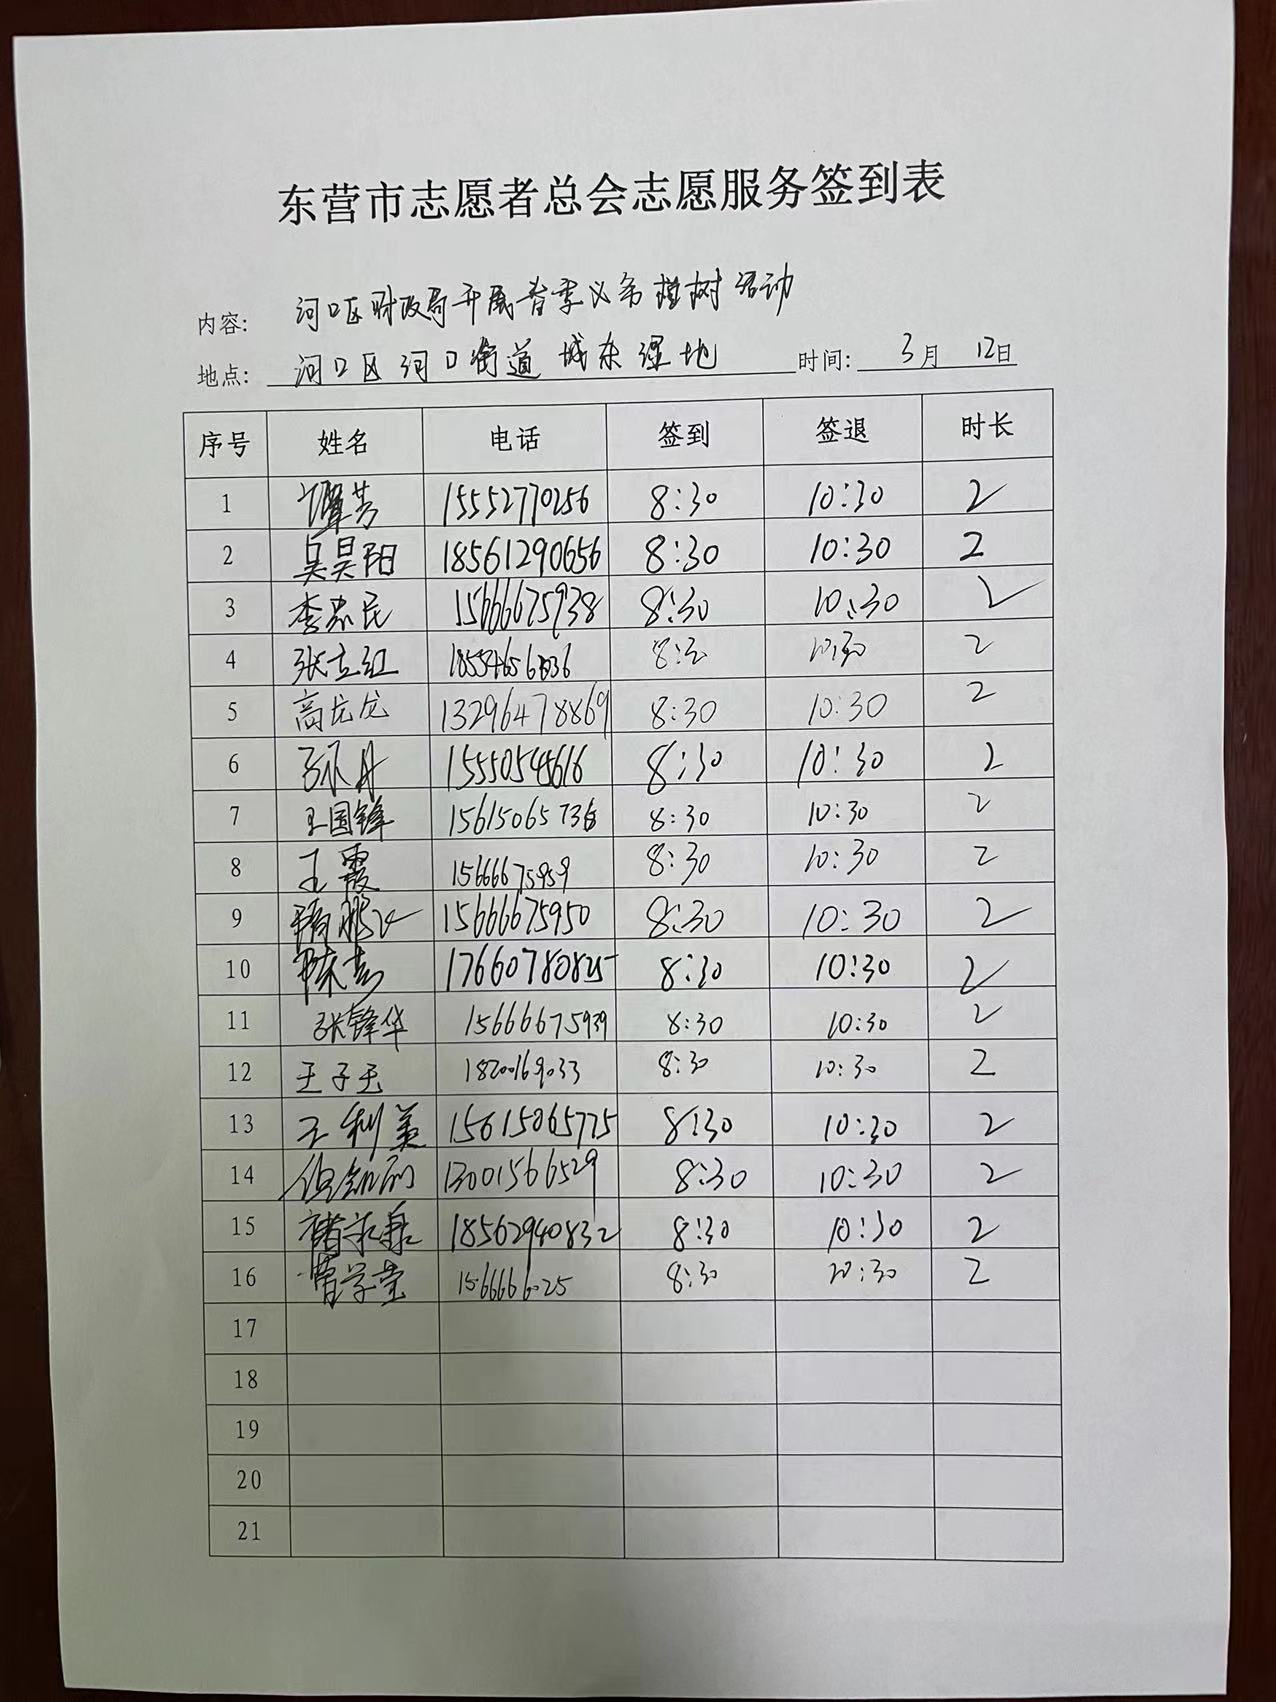 东营市志愿者总会志愿服务签到表
内容: 河口区财政局开展春季义务植树活动
地点: 河口区河口街道城东湿地 时间: 3月 12日
序号 姓名 电话 签到 签退 时长
1 谭芳 15552770256 8:30 10:30 2
2 吴昊阳 18561290656 8:30 10:30 2
3 李忠民 15666675938 8:30 10:30 2
4 张立红 8:30 10:30 2
5 高龙龙 13296478869 8:30 10:30 2
6 孙丹 15550545616 8:30 10:30 2
7 王国锋 15615065736 8:30 10:30 2
8 王霞 15666675959 8:30 10:30 2
9 15666675950 8:30 10:30 2
10 陈彦 17660780825 8:30 10:30 2
11 张锋华 15666675939 8:30 10:30 2
12 王子玉 18200169033 8:30 10:30 2
13 王利美 15615065775 8:30 10:30 2
14 13001566529 8:30 10:30 2
15 18562940832 8:30 10:30 2
16 曹学堂 8:30 10:30 2
17
18
19
20
21